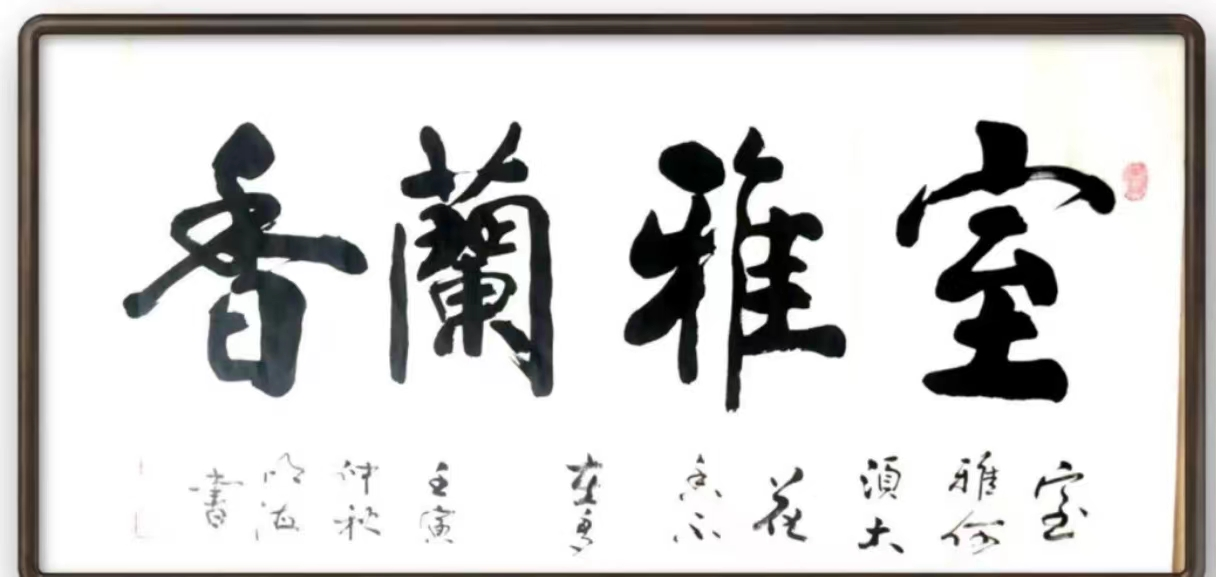 室雅蘭香
室雅何須大花香不在多
壬寅仲秋明海書